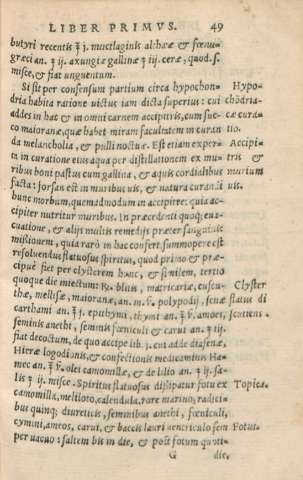 LIBER PRIMVS. 49
butyri recentis ꝗ̃ j. mucilaginis altheæ & fœnu-
græci an. ʒ ij. axungiæ gallinæ ʒ iij. ceræ, quod. s.
misce, & fiat unguentum.
Si sit per consensum partium circa hypochon- Hypo-
dria habita ratione uictus iam dicta superius: cui chõdria-
addes in hac & in omni carnem accipitris, cum suc- cæ cura-
co maioranæ, quæ habet miram facultatem in curan tio.
da melancholia, & pulli noctuæ. Est etiam exper- Accipi-
ta in curatione eius aqua per distillationem ex mu- tris &
ribus boni pastus cum gallina, & aquis cordialibus murium
facta: forsan est in muribus uis, & natura curandi uis.
hunc morbum, quemadmodum in accipitre: quia ac-
cipiter nutritur muribus. In præcedenti quoq; eua-
cuatione, & alijs multis remedijs præter sanguinis
missionem, quia rarò in hac confert. summopere est
resoluendus flatuosus spiritus, quod primo & præ-
cipuè fiet per clysterem hunc, & similem, tertio
quoque die iniectum: ℞. blitis, matricariæ, cuscu- Clyster
thæ, melissæ, maioranæ, an. m. ꝟ. polypodij, senæ flatus di
carthami an. ʒ j. epithymi, thymi an. ʒ ꝟ. amoes, scutiens.
seminis anethi, seminis fœniculi & carui an. ʒ iij.
fiat decoctum, de quo accipe lib. j. cui adde diasenæ,
Hieræ logodionis, & confectionis medicaminis Ha-
mec an. ʒ ꝟ. olei camomillæ, & de lilio an. ʒ ij. sa-
lis ʒ ij. misce. Spiritus flatuosus dissipatur fotu ex Topica.
camomilla, meliloto, calendula, rore marino, radici-
bus quinq; diureticis, seminibus anethi, fœniculi,
cymini, ameos, carui, & baccis lauri uentriculo sem Fotus.
per uacuo: saltem bis in die, & post fotum quoti-
G die,